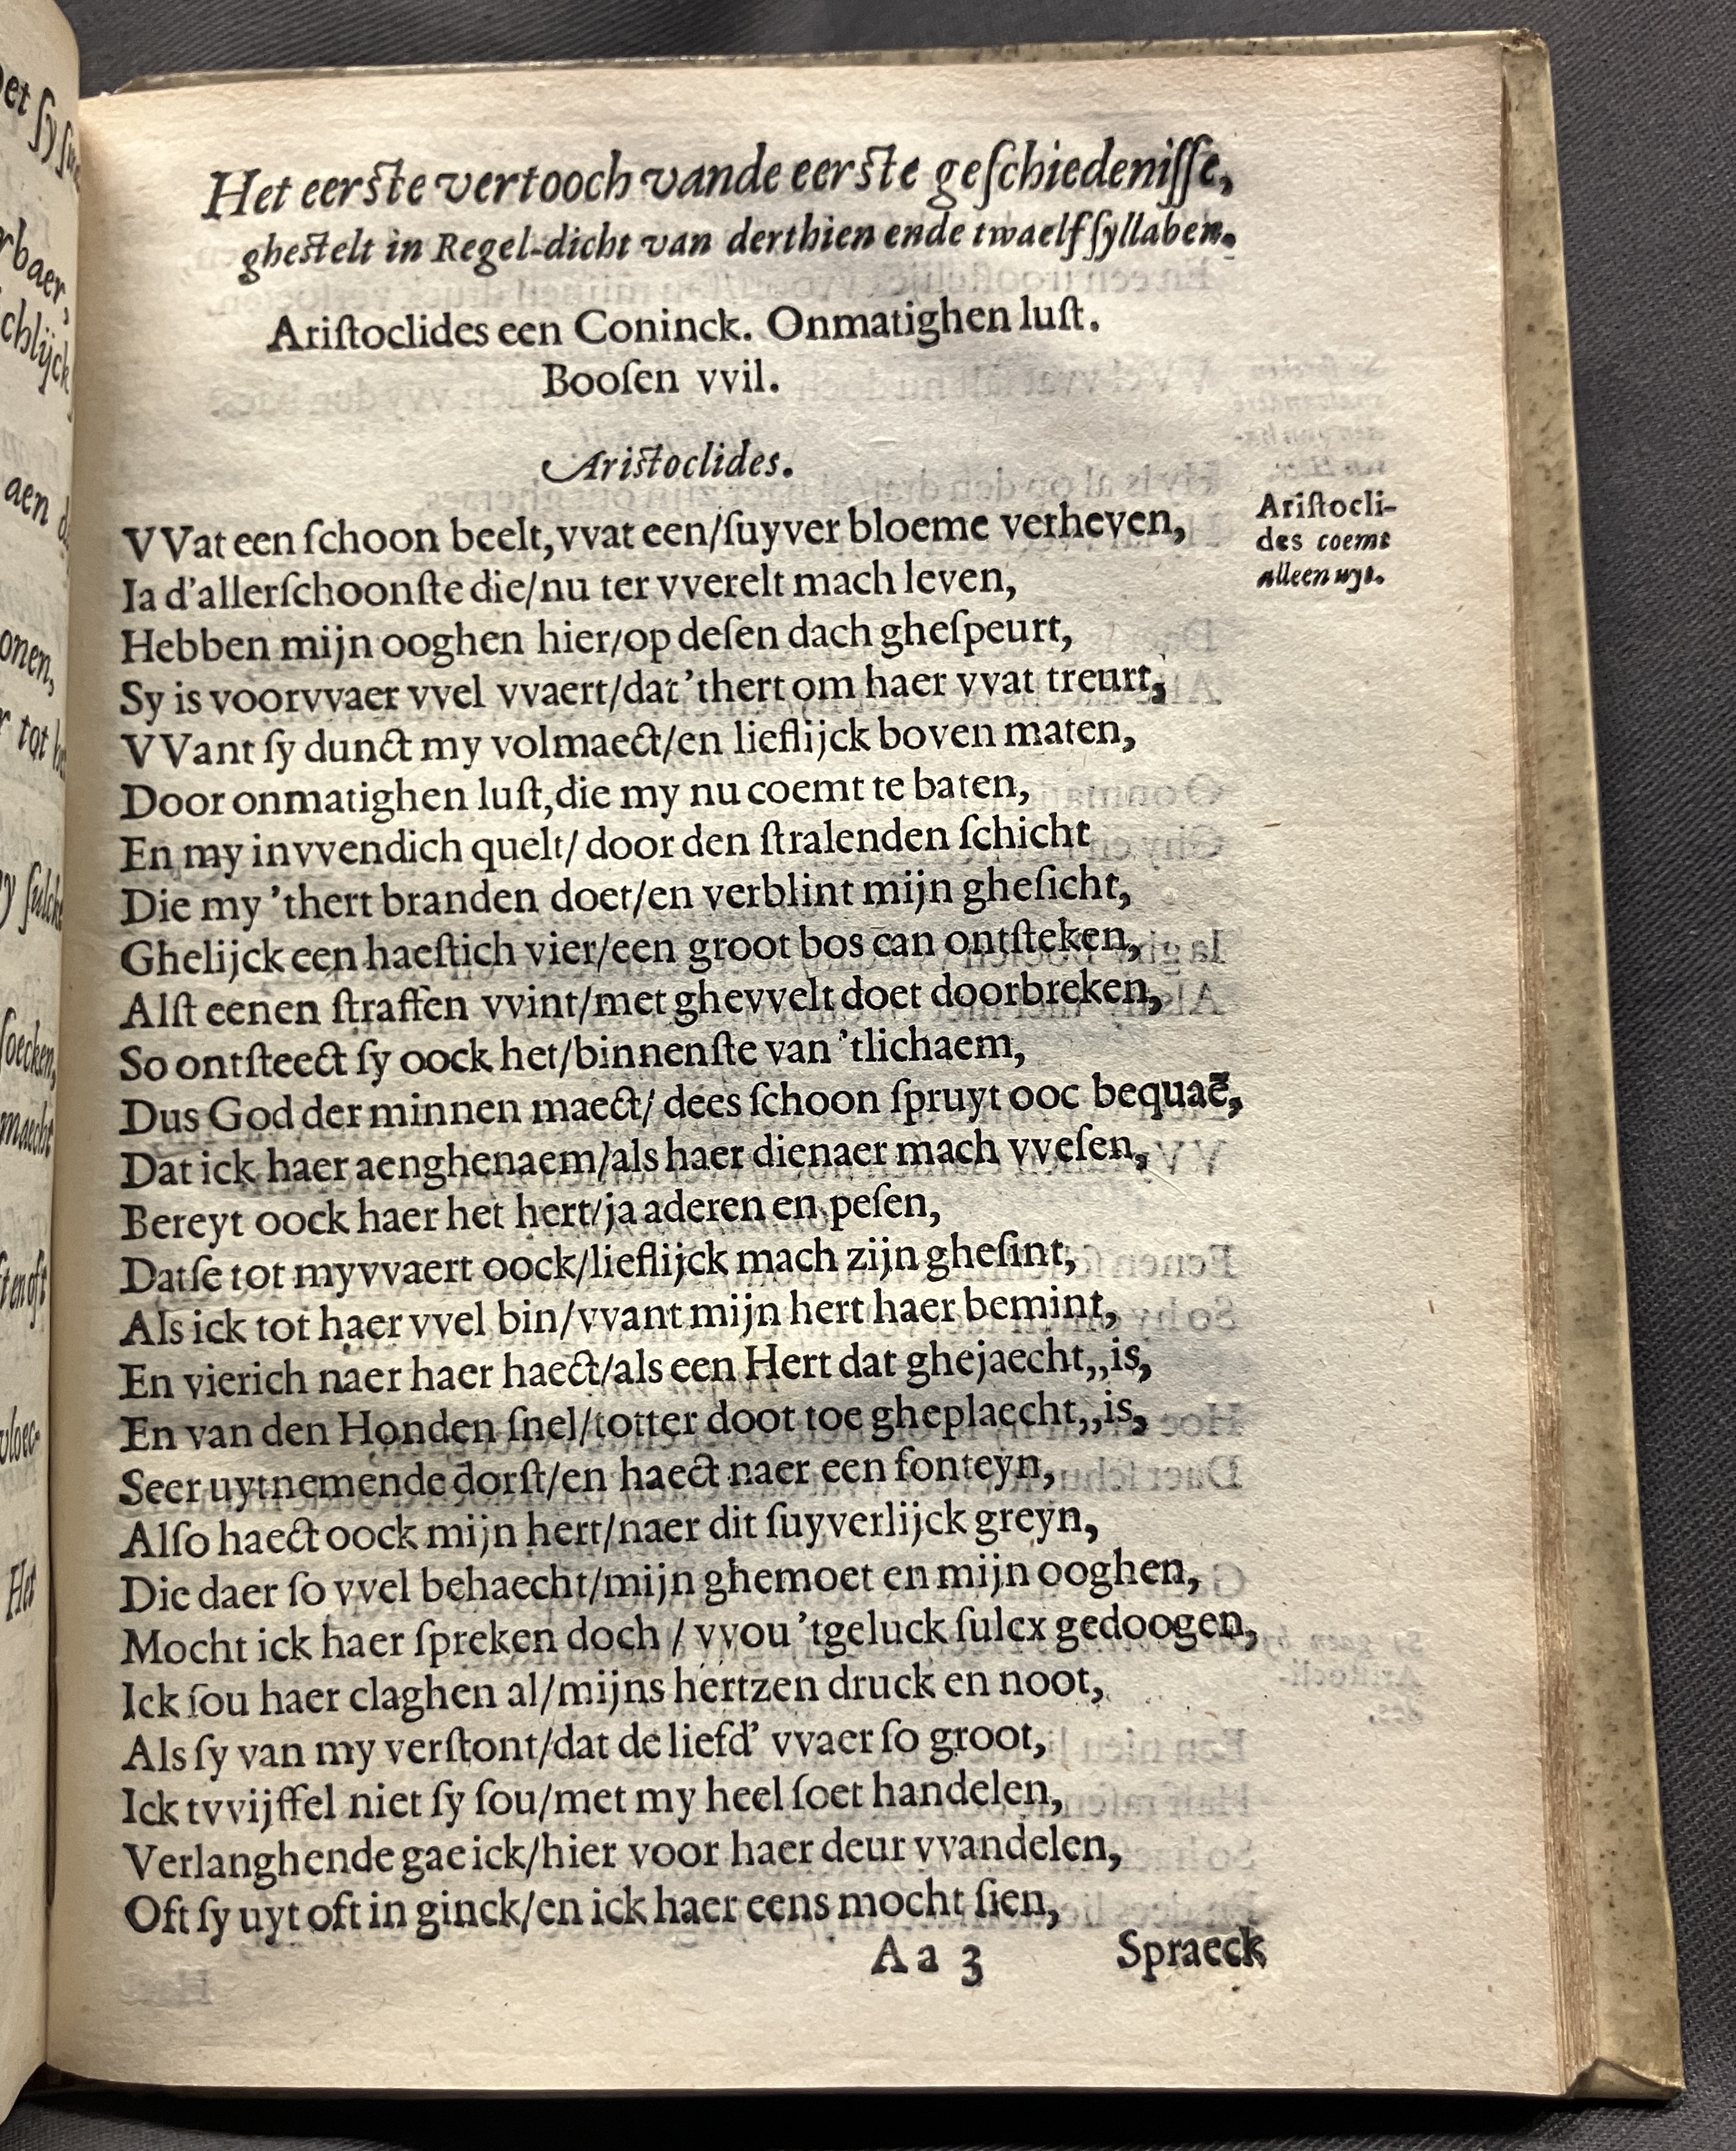 Het eerste vertooch vande eerste geſchiedeniſſe,
gheſtelt in Regel-dicht van derthien ende twaelf ſyllaben.
Ariſtoclides een Coninck. Onmatighen luſt.
Booſen vvil.
Ariſtoclides.
VVat een ſchoon beelt, vvat een/ſuyver bloeme verheven,
Ia d'allerſchoonſte die/nu ter vverelt mach leven,
Hebben mijn ooghen hier/op deſen dach gheſpeurt,
Sy is voorvvaer vvel vvaert/dat 'thert om haer vvat treurt,
VVant ſy dunct my volmaect/en lieflijck boven maten,
Door onmatighen luſt, die my nu coemt te baten,
En my invvendich quelt/ door den ſtralenden ſchicht
Die my 'thert branden doet/en verblint mijn gheſicht,
Ghelijck een haeſtich vier/een groot bos can ontſteken,
Alſt eenen ſtraffen vvint/met ghevvelt doet doorbreken,
So ontſteect ſy oock het/binnenſte van 'tlichaem,
Dus God der minnen maect/ dees ſchoon ſpruyt ooc bequaē,
Dat ick haer aenghenaem/als haer dienaer mach vveſen,
Bereyt oock haer het hert/ja aderen en peſen,
Datſe tot myvvaert oock/lieflijck mach zijn gheſint,
Als ick tot haer vvel bin/vvant mijn hert haer bemint,
En vierich naer haer haect/als een Hert dat ghejaecht,,is,
En van den Honden ſnel/totter doot toe gheplaecht,,is,
Seer uytnemende dorſt/en haect naer een fonteyn,
Alſo haect oock mijn hert/naer dit ſuyverlijck greyn,
Die daer ſo vvel behaecht/mijn ghemoet en mijn ooghen,
Mocht ick haer ſpreken doch / vvou 'tgeluck ſulcx gedoogen,
Ick ſou haer claghen al/mijns hertzen druck en noot,
Als ſy van my verſtont/dat de liefd' vvaer ſo groot,
Ick tvvijffel niet ſy ſou/met my heel ſoet handelen,
Verlanghende gae ick/hier voor haer deur vvandelen,
Oft ſy uyt oft in ginck/en ick haer eens mocht ſien,
Aa 3 Spraeck
Ariſtocli-
des coemt
alleen uyt.